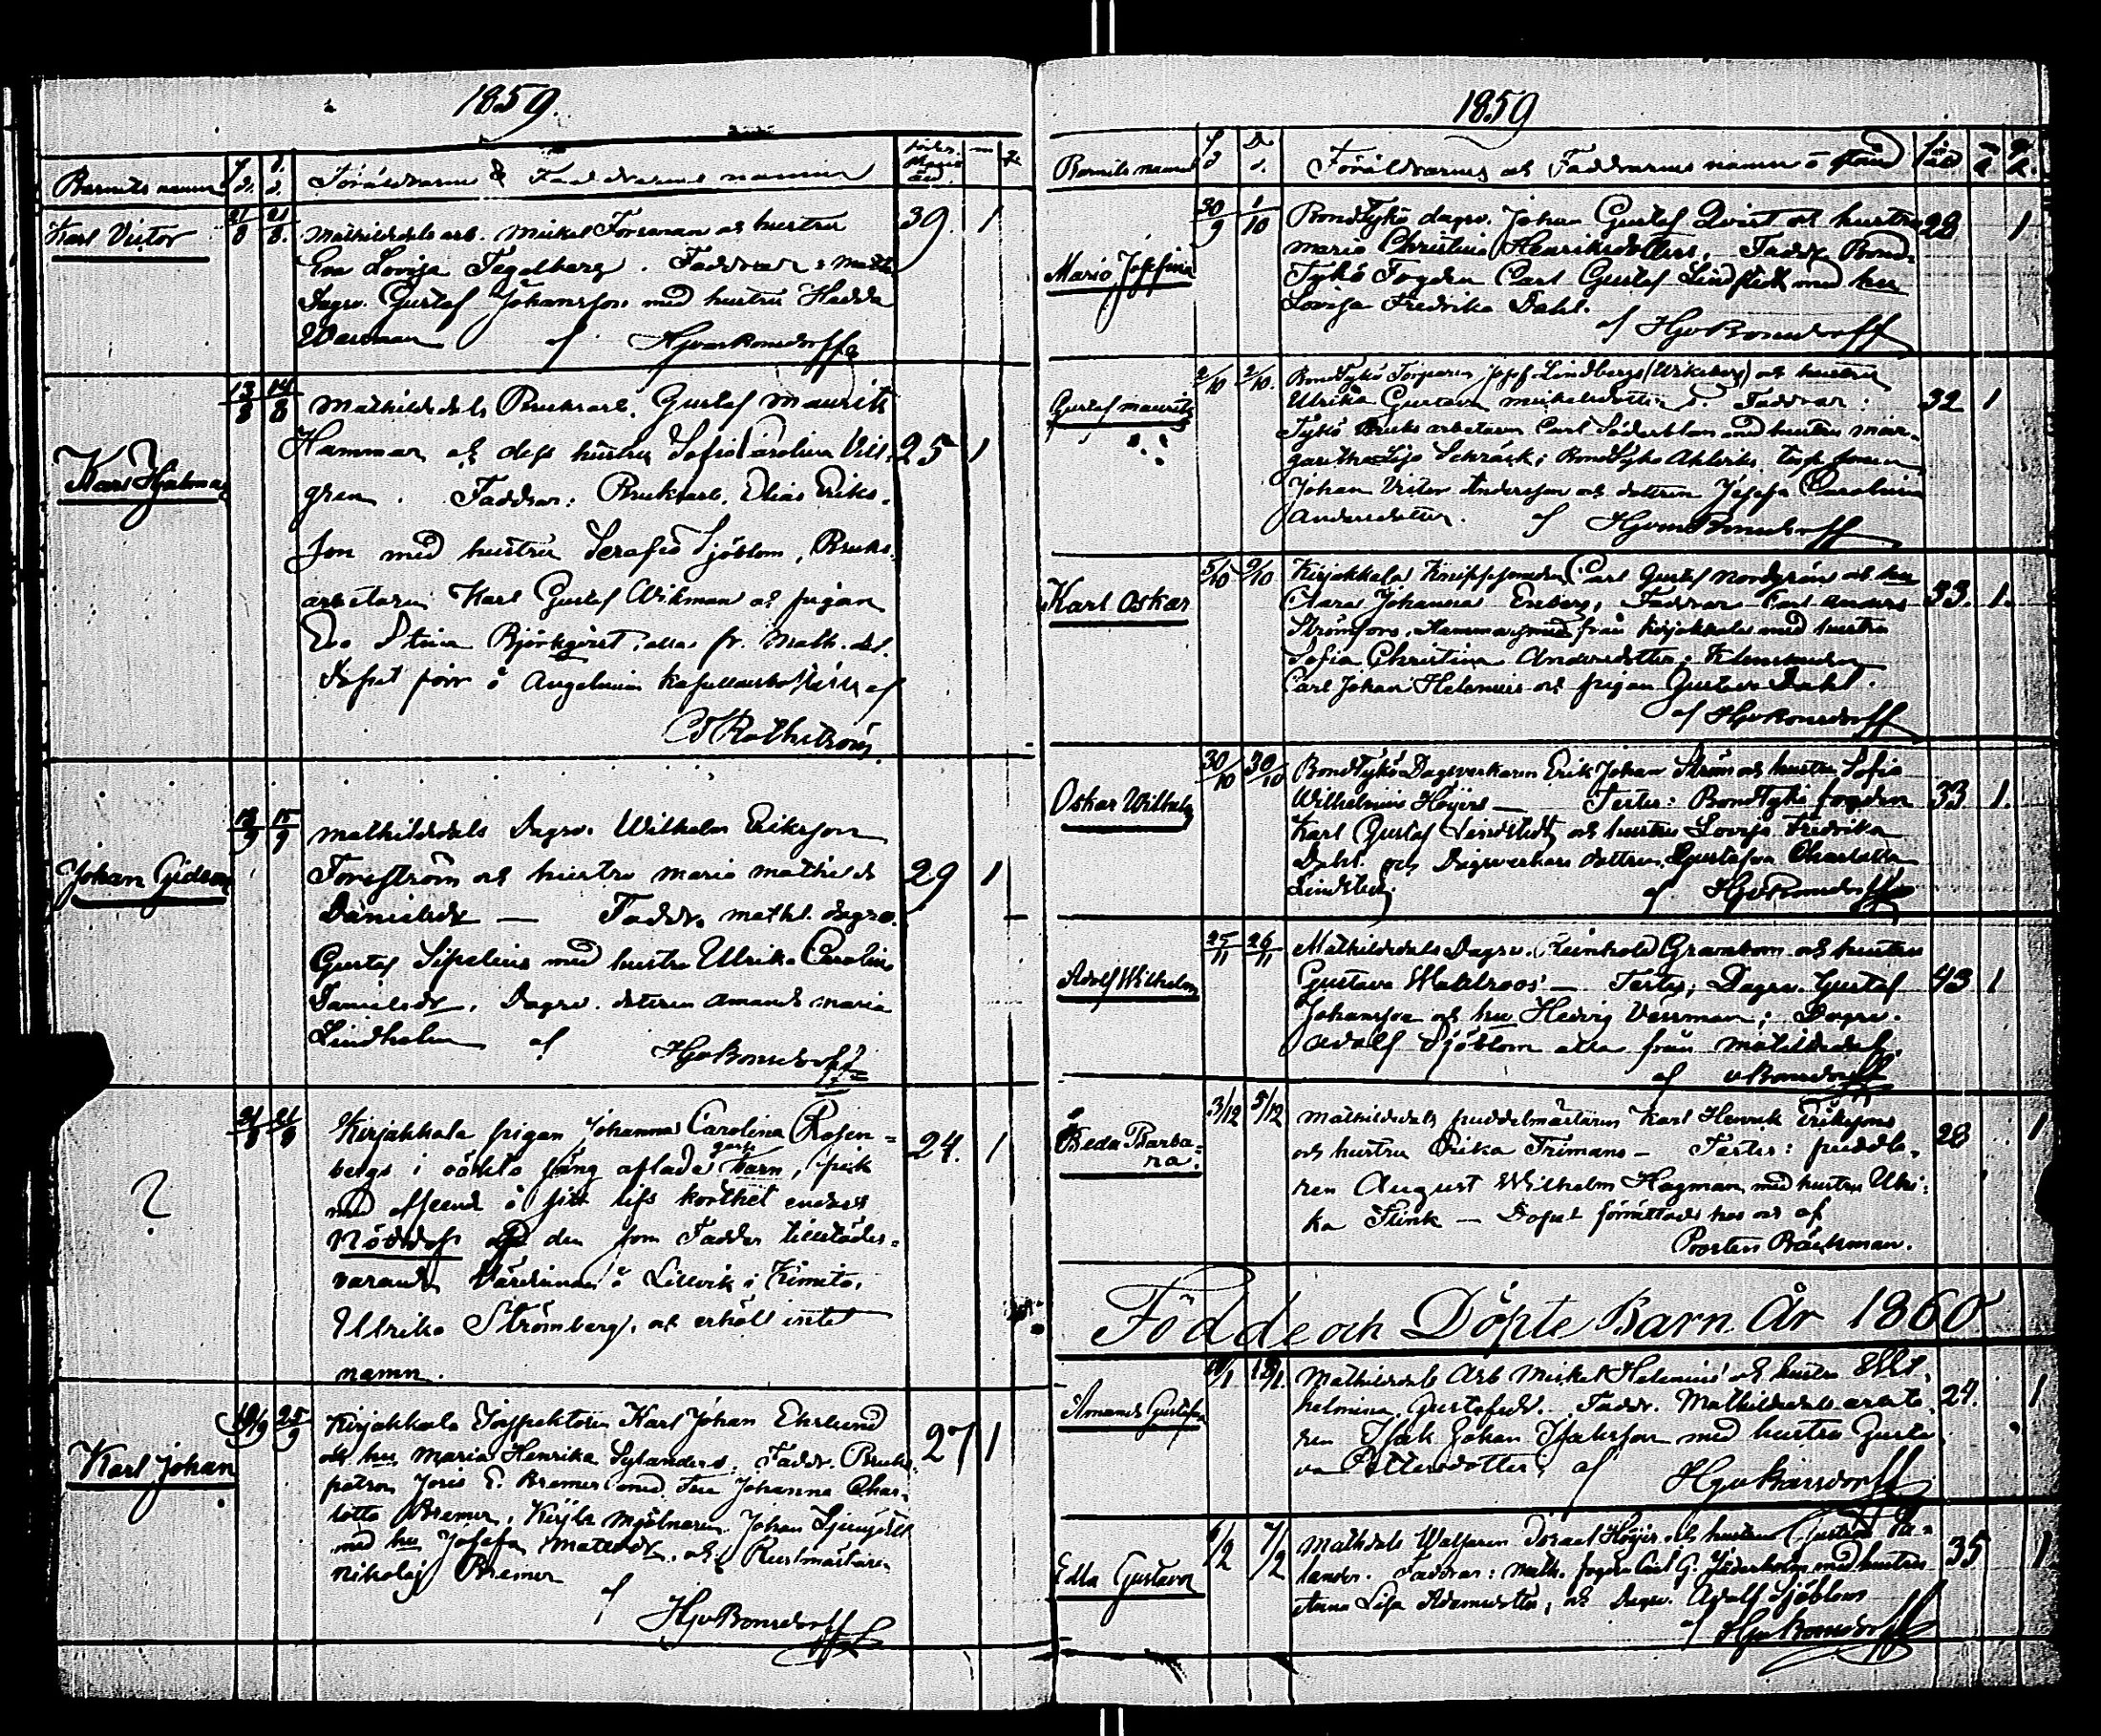 1859.
Barnets namn f. d. Föräldrarnes & Faddrarnes namn
Karl Victor 21/8 21/8. Mathildedals arb. Mickel Forsman och hustru 39 1
Eva Lovisa Tegelberg. Faddrar: Math.
Dagsv. Gustaf Johansson med hustru Hedda
Werman af HJvonBonsdorff
Karl Hjalmar 13/8 14/8 Mathildedals Bruksarb. Gustaf Maurits
Hammar och dess hustru Sofia Carolina Vil- 25 1
gren. Faddrar: Bruksarb. Elias Eriks-
son med hustru Serafia Sjöblom, Bruks-
arbetaren Karl Gustaf Wikman och pigan
Eva Stina Björkqvist, alla fr. Math.dal.
Döpet förr. å Angelniemi af
Johan Gideon 15/9 Mathildedals Dagsv. Wilhelm Eriksson
Forsström och hustru Maria Mathilda 29 1
Danielsdr — Faddr. Math. dagsv.
Gustaf Sipelius med hustru Ulrika Carolina
Danielsdr, Dagsv. dottren Amanda Maria
Lindholm af HJvBonsdorff
? Kirjakkala pigan Johanna Carolina Rosen- 24. 1
bergs i oäkta säng aflade gosse barn, fick
med afseende å sitt lifs korthet endast
Nöddop af den som Fadder tillstädes-
varande Värdinnan å Lillvik i Kimito,
Ulrika Strömberg, och erhöll intet
namn.
Karl Johan 25/9 Kirjakkala Inspektoren Karl Johan Ehrlund 27 1
och hu Maria Henrika Sylanders. Faddr. Bruks-
patron Joris E. Bremer med Fru Johanna Char-
lotta Bremer, Kirj:la Mjölnaren Johan
med hu Josefa Matsdr. och Rustmästaren
Nikolaj Bremer
af HJvBonsdorff
1859
Barnets namn f d D. d. Föräldrarnes och Faddrarnes namn o stånd
Maria Josefina 30/9 1/10 Bondtykö dagsv. Johan Gustaf Qvist och hustru 28 1
Maria Christina Henriksdotters, Faddr. Bond-
Tykö Fogden Carl Gustaf Lindstedt med hu
Lovisa Fredrika Dahl.
af HJvBonsdorff
Gustaf Maurits 2/10 2/10. Bondtykö Torparen Josef Lindbergs (Wikeberg) och hustru
Ulrika Gustava Michelsdotter s. Faddrar: 32 1
Tykö Bruks arbetaren Carl Söderblom med hustru Mar-
garetha Lisa Schräck; Bondtykö
Johan Victor Andersson och dottren Josefa Carolina
Andersdotter. af HJvonBonsdorff
Karl Oskar 5/10 9/10 Kirjakkala Knippsmeden Carl Gustaf Nordgréns och hu
Clara Johanna Enberg, Faddrar Carl Anders 33. 1.
Strömfors, Hammarsmed från Kirjakkala med hustru
Sofia Christina Andersdotter;
Carl Johan Helenius och pigan Gustava Dahl.
af HJvBonsdorff
Oskar Wilhelm 30/10 30/10 Bondtykö Dagsverkaren Erik Johan Ström och hustru Sofia
Wilhelmina Höijers — Testes: Bondtykö fogden 33 1.
Karl Gustaf Lindstedt och hustru Lovisa Fredrika
Dahl. och Dagsverkare dottren Gustafva Charlotta
Lindstedt. af HJvBonsdorff
Adolf Wilhelm 25/11 26/11 Mathildedals Dagsv. Reinhold Granbom och hustru
Gustava Wahlroos — Testes; Dagsv. Gustaf 43 1
Johansson och hu Hedvig Verman; Dagsv.
Adolf Sjöblom alla från Matildedal.
af vBonsdorff
Beda Barba-
ra. 3/12 5/12 Mathildedals puddelmästaren Karl Henrik Erikssons 28 1
och hustru Erika Trimans — Testes: puddla-
ren August Wilhelm Hagman med hustru Ulri-
ka Flink — Dopet förrättades hos oss af
Prosten Bäckman.
Födde och Döpte Barn År 1860
Amanda Gustafva Mathildedals Arb Mickel Helenius och hustru Wil- 24. 1
helmina Gustafsdr. Faddr. Mathildedals arbeta-
ren Isak Johan Isaksson med hustru Gusta-
va Pettersdotter, af HJvBonsdorff
Edla Gustava 6/2 7/2 Math.dals Walsaren Israel Höijer och hustru Gustava 35 1
lander. Faddrar: Math. fogden Carl G. Söderholm med hustru
Anna Lisa Adamsdotter, och Dagsv. Adolf Sjöblom
af HJvBonsdorff